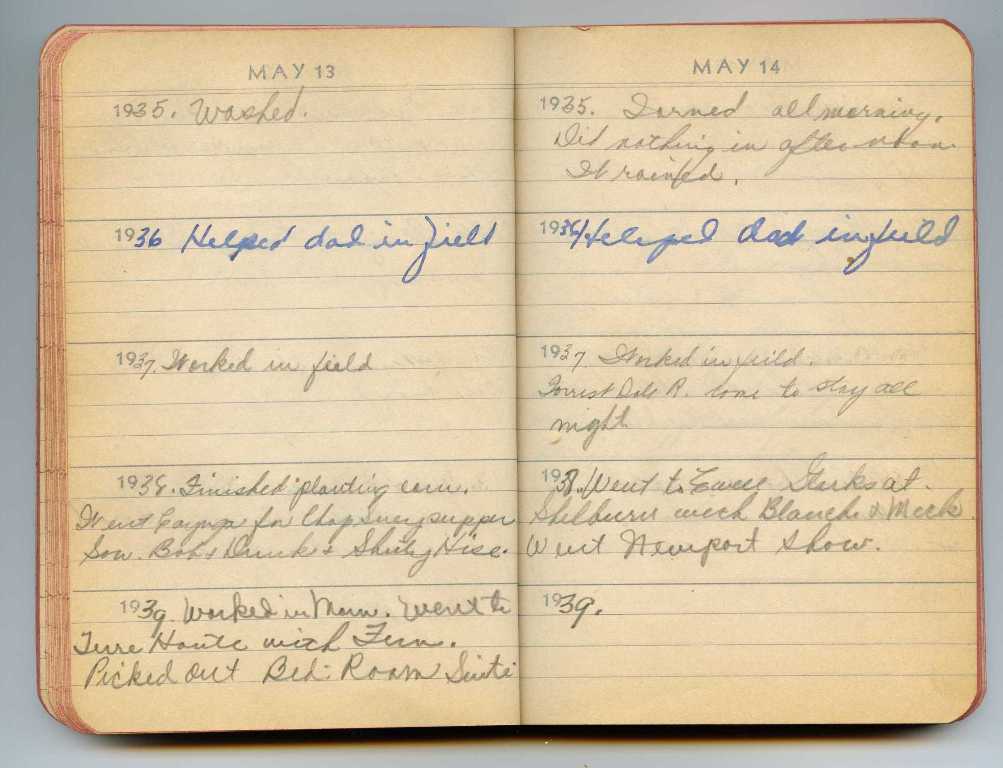 MAY 13
1935. Washed.
1936 Helped dad in field
1937. Worked in field
1938. Finished planting corn.
Went Cayuga for Chop Suey supper
Saw Bob & & Shirley Hise.
1939. Worked in Morn. Went to
Terre Haute with Fern.
Picked out Bed Room Suite
MAY 14
1935. Ironed all morning.
Did nothing in afternoon
It rained.
1936 Helped dad in field
1937. Worked in field.
Forrest Dale R. come to stay all
night
1938. Went to at
Shelburn with Blanche & Meek
Went Newport show.
1939.